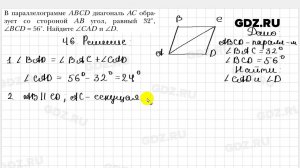 В параллелограмме ABCD диагональ AC обра-
зует со стороной AB угол, равный 32°,
∠BCD = 56°. Найдите ∠CAD и ∠D.
46. Решение
1 ∠BAD = ∠BAC + ∠CAD
∠CAD = 56° - 32° = 24°
2 AB || CD, AC - секущая
A
B
C
D
Дано
ABCD - парал-м
∠BAC = 32°
∠BCD = 56°
Найти
∠CAD и ∠D
GDZ.RU
GDZ.RU